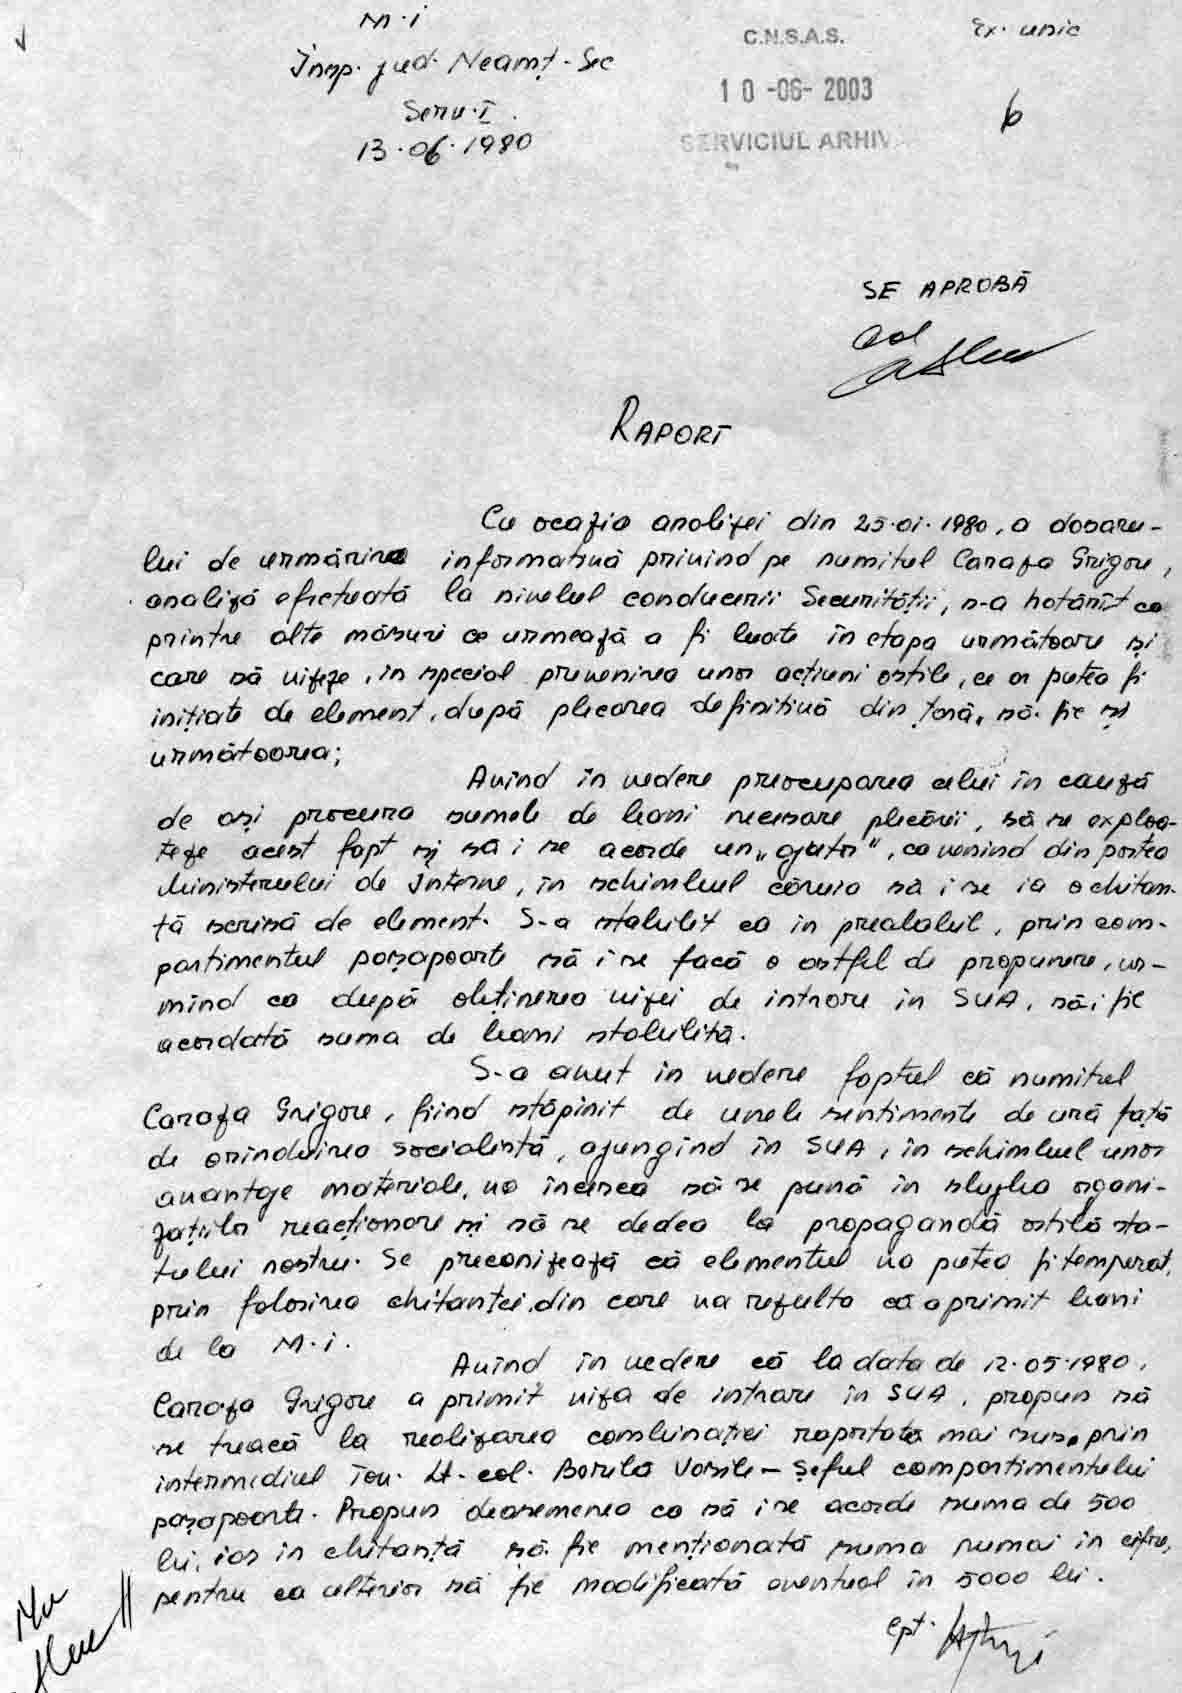 M.i
Insp. jud. Neamț - Sec
Serv. I.
13.06.1980
C.N.S.A.S.
10 -06- 2003
SERVICIUL ARHIV
Ex. unic
6
SE APROBĂ
Col
RAPORT
Cu ocazia analizei din 25.01.1980, a dosaru-
lui de urmărire informativă privind pe numitul Caraza Grigore,
analiză efectuată la nivelul conducerii Securității, s-a hotărît ca
printre alte măsuri ce urmează a fi luate în etapa următoare și
care să vizeze, în special prevenirea unor acțiuni ostile, ce ar putea fi
inițiate de element, după plecarea definitivă din țară, să fie și
următoarea;
Avînd în vedere preocuparea celui în cauză
de ași procura sumele de bani necesare plecării, să se exploa-
teze acest fapt și să i se acorde un „ajutor", ca venind din partea
Ministerului de Interne, în schimbul căruia să i se ia o chitan-
ță scrisă de element. S-a stabilit ca in prealabil, prin com-
partimentul pașapoarte să i se facă o astfel de propunere, ur-
mînd ca după obținerea vizei de intrare în SUA, să-i fie
acordată suma de bani stabilită.
S-a avut in vedere faptul că numitul
Caraza Grigore, fiind stăpînit de unele sentimente de ură față
de orînduirea socialistă, ajungînd în SUA, în schimbul unor
avantaje materiale, va încerca să se pună în slujba organi-
zațiilor reacționare și să se dedea la propagandă ostilă sta-
tului nostru. Se preconizează că elementul va putea fi temperat,
prin folosirea chitanței, din care va rezulta că a primit bani
de la M.i.
Avînd în vedere că la data de 12.05.1980,
Caraza Grigore a primit viza de intrare în SUA, propun să
se treacă la realizarea combinației raportată mai sus, prin
intermediul Tov. Lt. col. Borulo Vasile - Șeful compartimentului
pașapoarte. Propun deasemenea ca să i se acorde suma de 500
lei, iar in chitanță să fie menționată suma numai în cifre,
pentru ca ulterior să fie modificată eventual în 5000 lei.
Cpt.